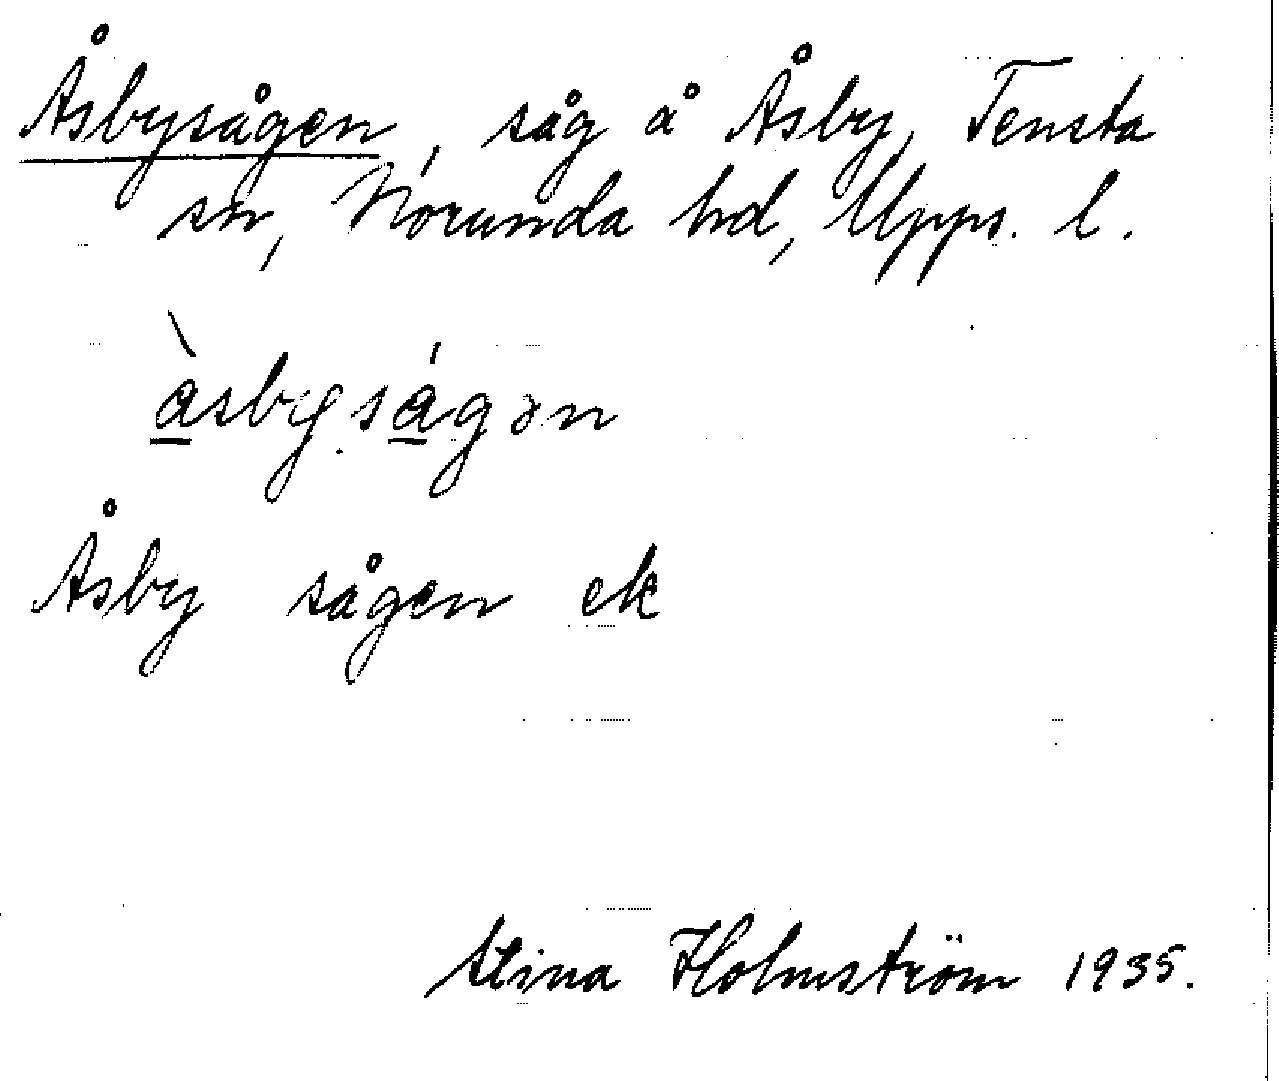 Åsbysågen, såg å Åsby, Tensta
sn, Norunda hd, Upps. l.
àsbyságən
Åsby sågen ek
Stina Holmström 1935.